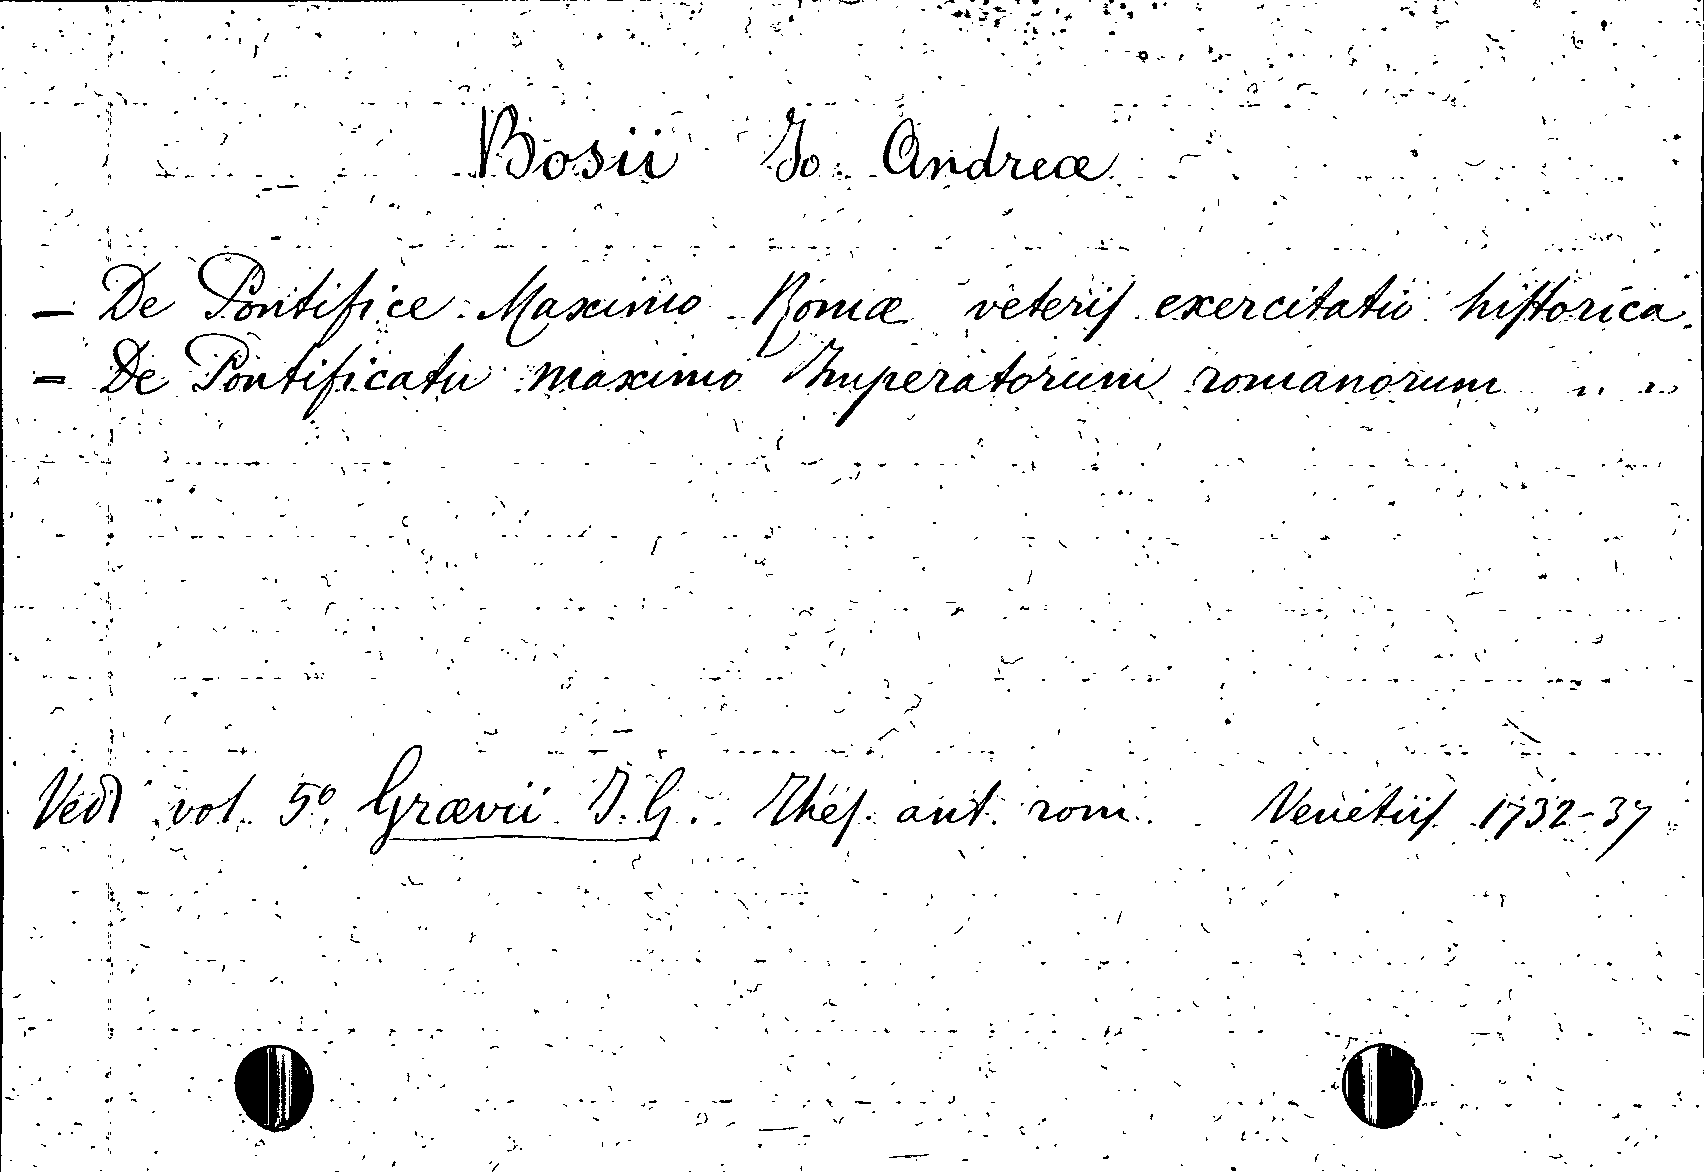 Bosii Jo. Andreæ
– De Pontifice Maximo Romæ veteris exercitatio historica.
– De Pontificatu maximo Imperatorum romanorum " "
Vedi vol. 5º Grævii J. G. Thes. ant. rom. Venetiis 1732-37